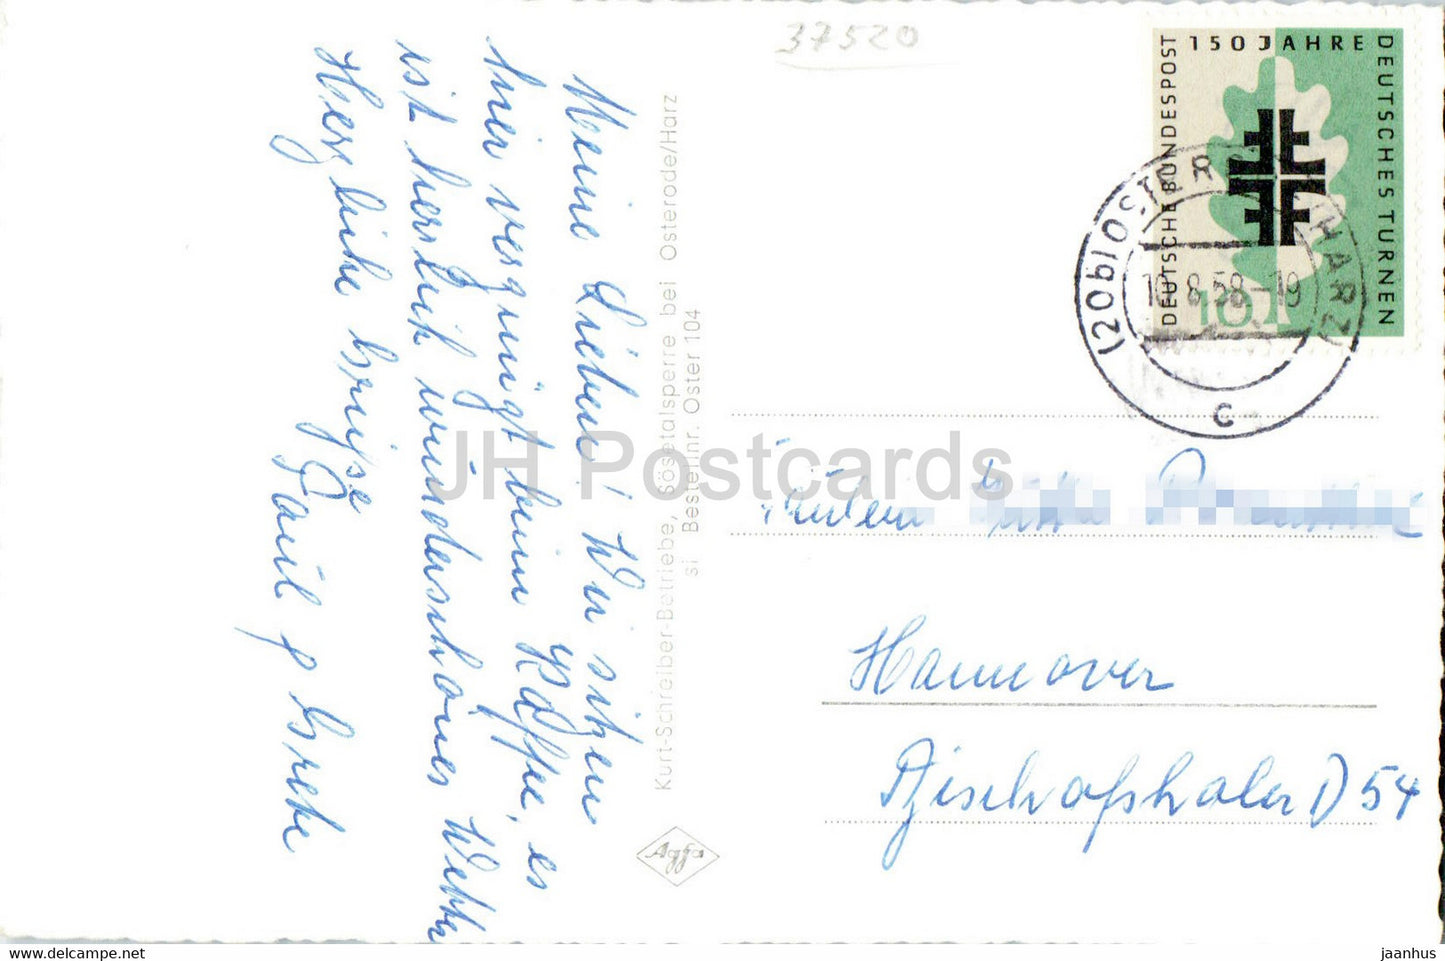 37520
150 JAHRE
DEUTSCHES TURNEN
DEUTSCHE BUNDESPOST
10
(20b) OSTER HARZ)
10.8.58-19
c
Meine Lieben! Wir sitzen
hier vergnügt beim Kaffee, es
ist herrlich wunderschönes Wetter
Herzliche Grüße
Paul & Grete
Kurt-Schreiber-Betriebe, Sösetalsperre bei Osterode/Harz
si Bestellnr. Oster 104
Agfa
Fräulein
Hannover
Bischofsholer D 54
JH Postcards
www.delcampe.net
jaanhus